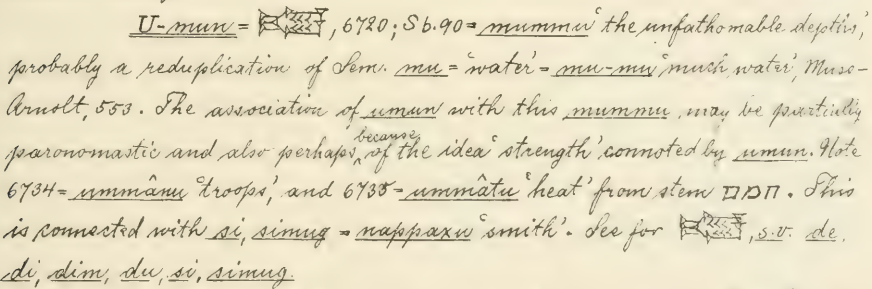 U-mun = , 6720; Sb. 90 = mummu 'the unfathomable depths',
probably a reduplication of Sem. mu = 'water' = mu-mu 'much water', Muss-
Arnolt, 553. The association of umun with this mummu may be partially
paronomastic and also perhaps, because of the idea 'strength' connoted by umun. Note
6734 = ummânu 'troops', and 6735 = ummâtu 'heat' from stem חמם. This
is connected with si, simug = nappaxu 'smith'. See for , s.v. de,
di, dim, du, si, simug.